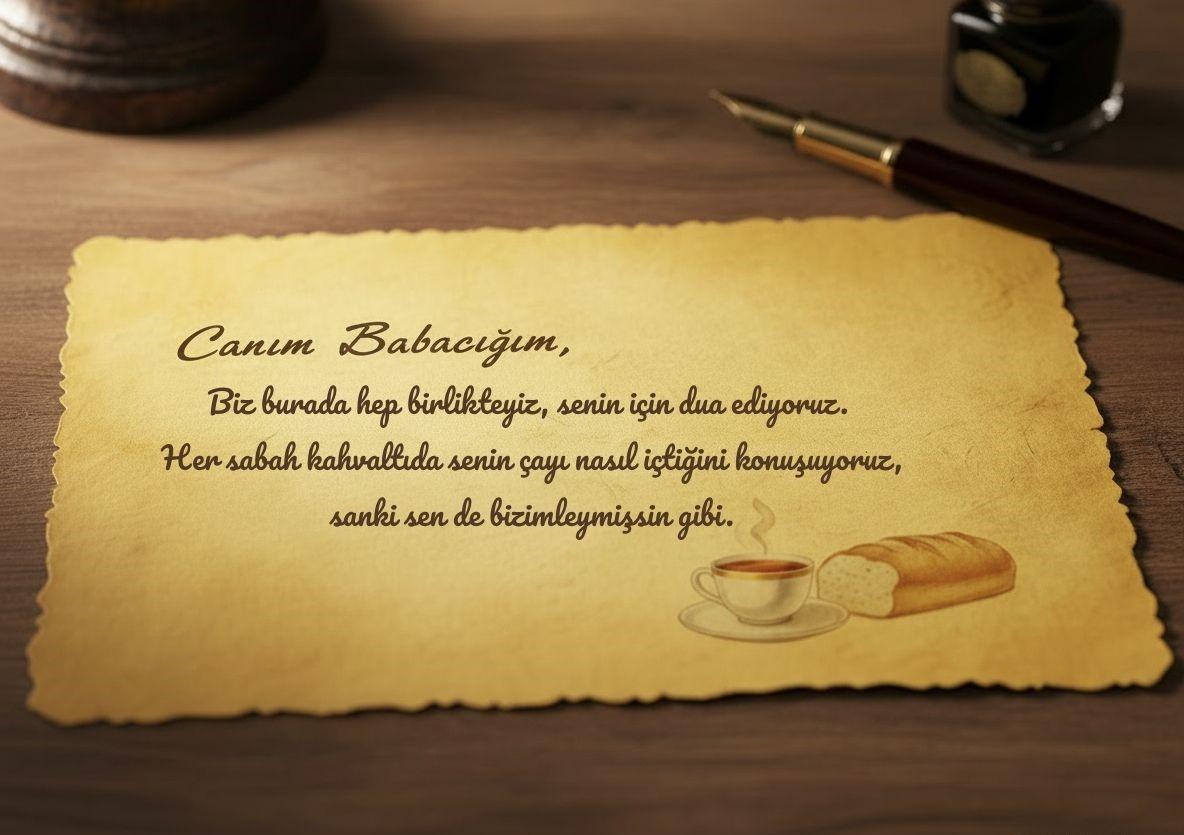 Canım Babacığım,
Biz burada hep birlikteyiz, senin için dua ediyoruz.
Her sabah kahvaltıda senin çayı nasıl içtiğini konuşuyoruz,
sanki sen de bizimleymişsin gibi.